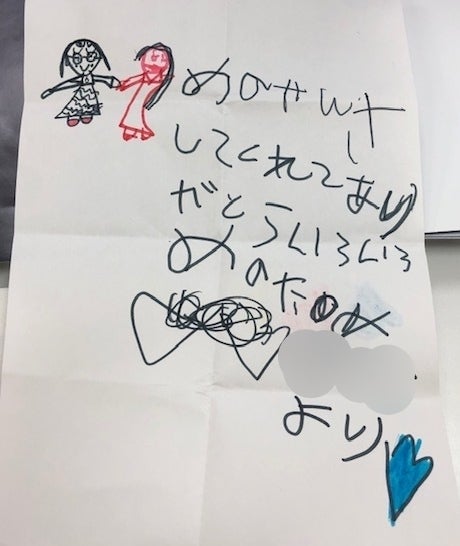 めのけんさ
してくれてあり
がとういろいろ
めのため
より